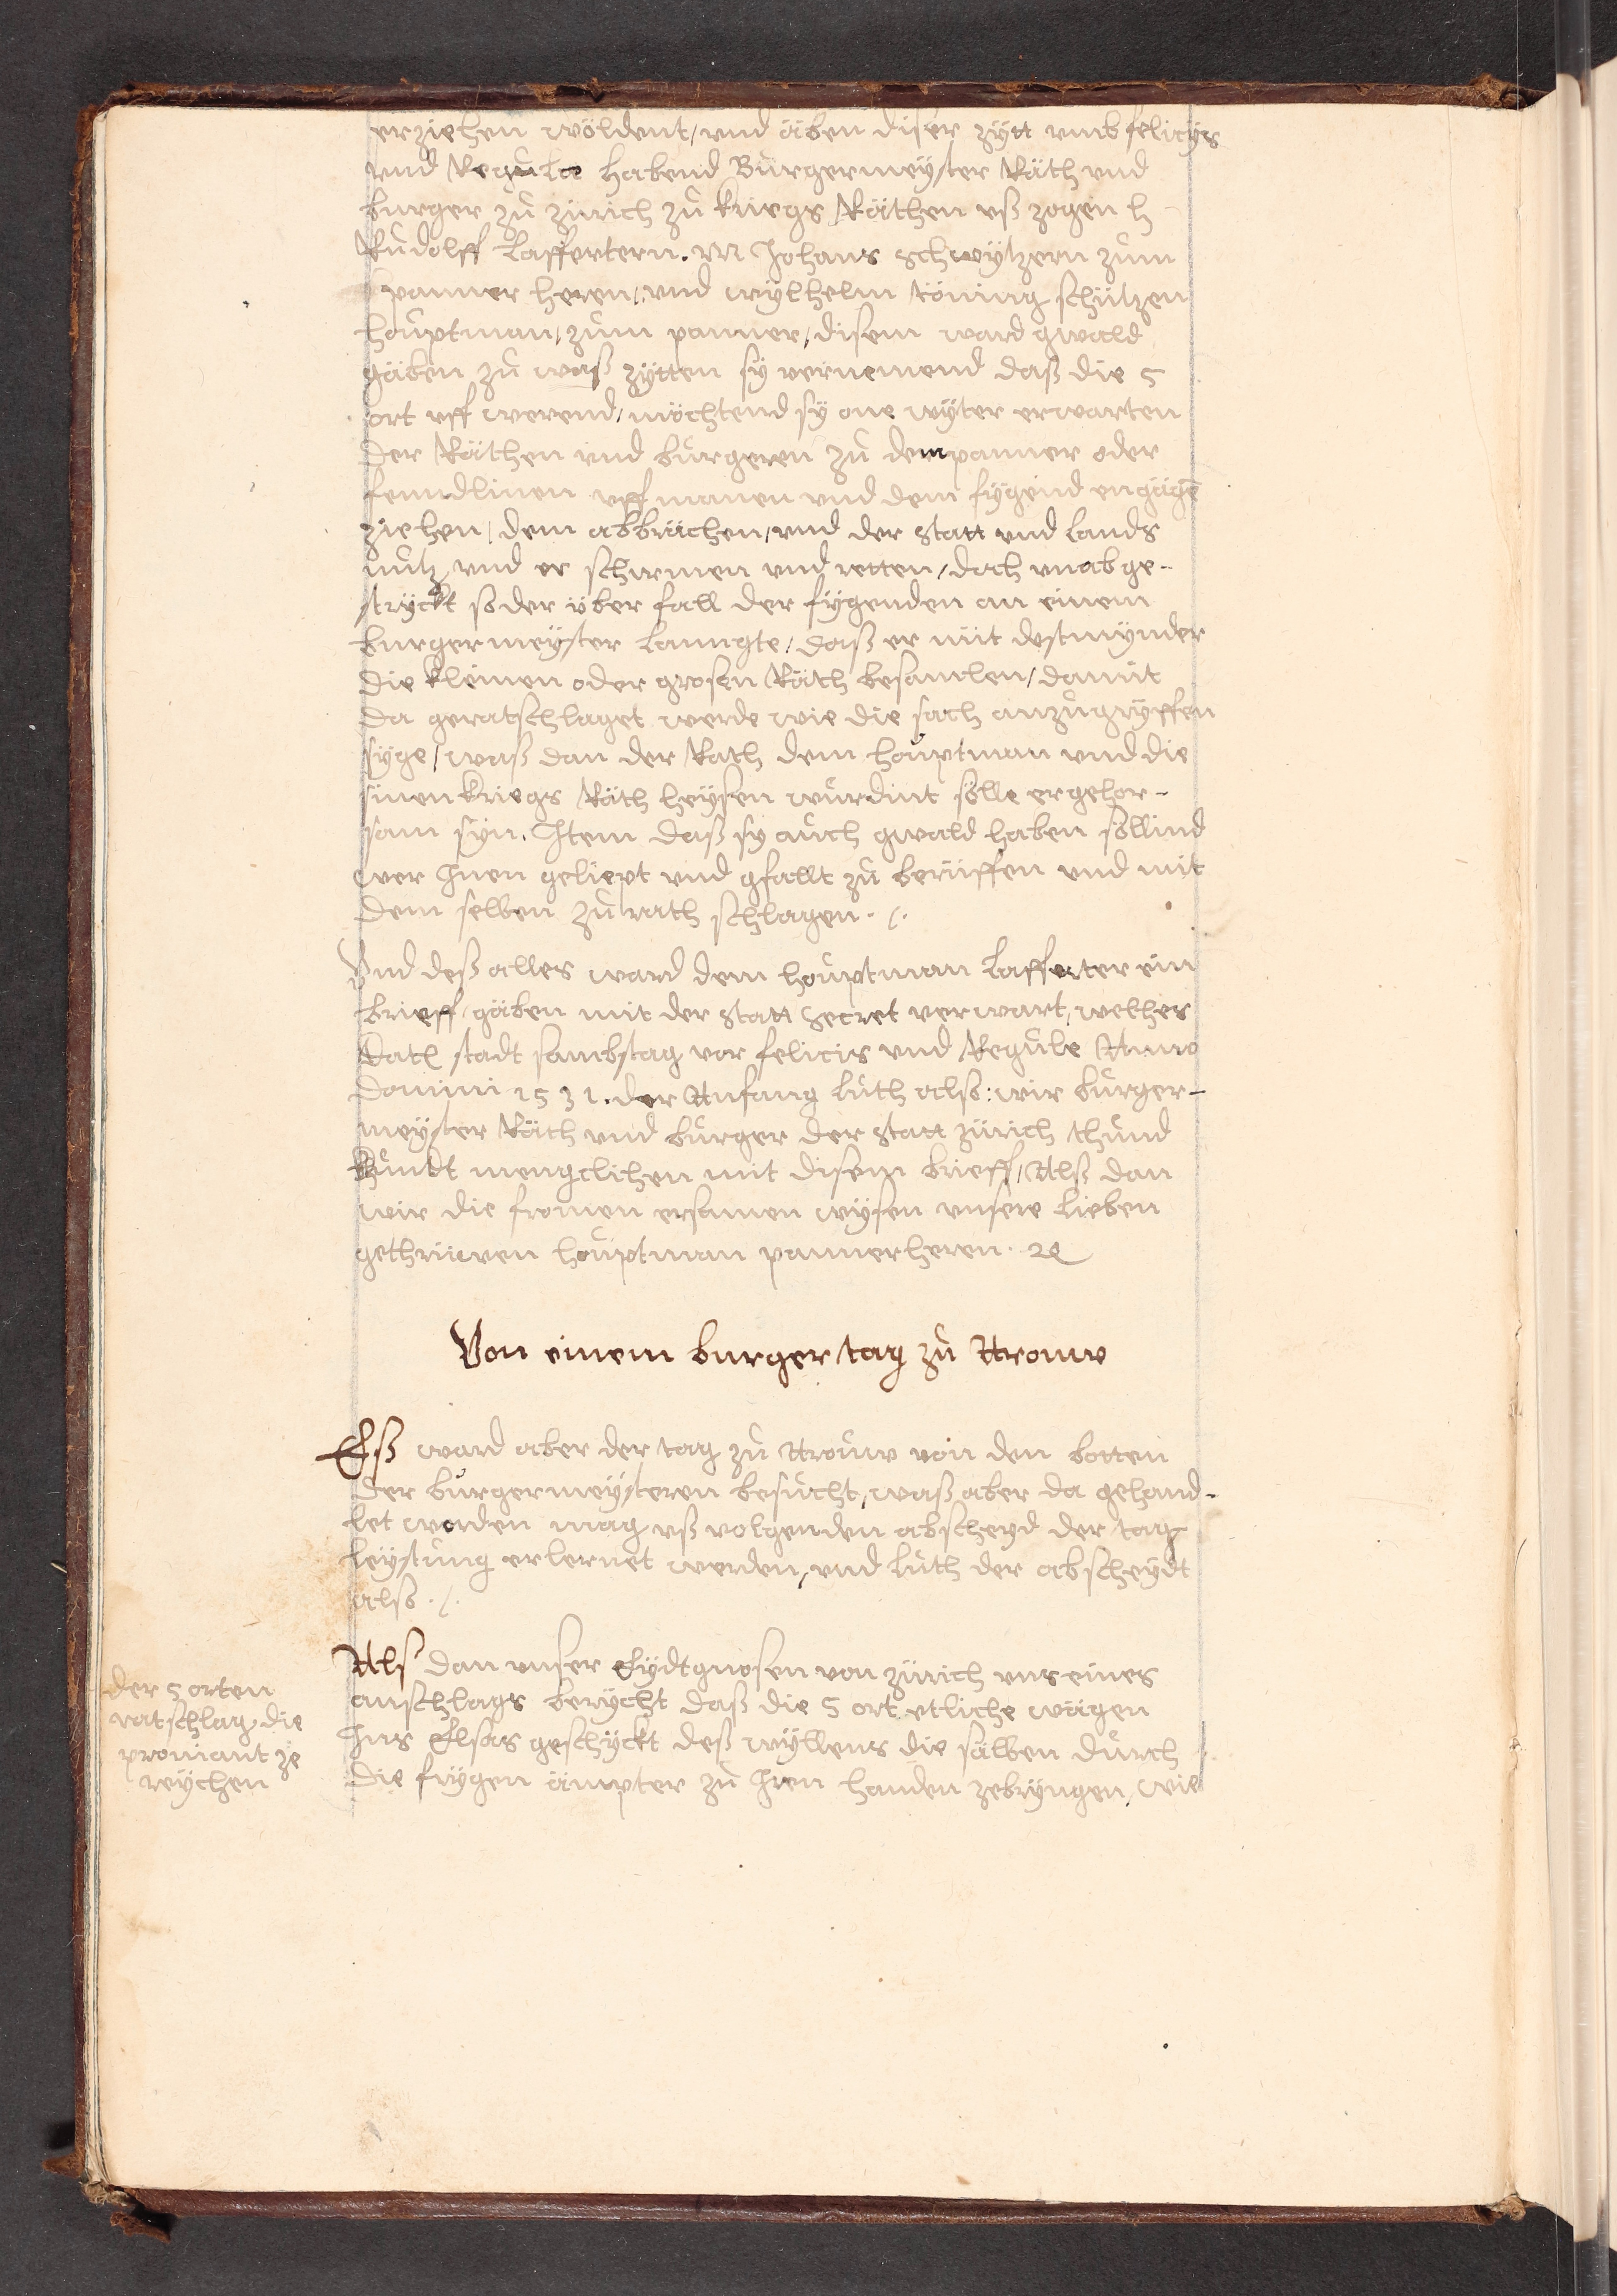 erziehen wöldent / vnd äben diser zÿtt vmb felicÿs
vnd Regula habend Bürgermeÿster Räth vnd
burger zů zürich zů kriegs Räthen vß zogen h
Růdolff Laffertern. M Johans schwÿtzern zům
panner heren, vnd wÿlhelm töning schützen
houptman, zům panner, disem ward gwald
gäben zů waß zÿtten sÿ vernemend daß die 5
ort vff werend, möchtend sÿ one wÿter erwarten
der Räthen vnd bürgeren zů dem panner oder
fenndlinen vff manen vnd dem fÿgend engägē
ziehen, dem abbrächen, vnd der statt vnd lands
nutz vnd er schirmen vnd retten, doch vnabge-
strÿckt so der über fall der fÿgenden an einem
burgermeÿster lanngte, daß er nüt dest mÿnder
die kleinen oder grosen Räth besamlen, damit
da geratschlaget werde wie die sach anzůgrÿffen
sÿge, waß dan der Rath dem houptman vnd die
sinen kriegs Räth heÿsen würdint sölle er gehor-
sam sÿn. Item daß sÿ auch gwald haben söllind
wer Inen geliept vnd gfallt zů berüffen vnd mit
dem selben zů rath schlagen ./.
Vnd deß alles ward dem houptman Laffetter ein
brieff gäben mit der statt Secret verwart, welcher
Dat stadt sambstag vor felicis vnd Regule Anno
Domini 1531. der Anfang luth also: wir bürger-
meÿster Räth vnd bürger der statt zürich thůnd
kundt mengclichen mit disem brieff, Alß dan
wir die fromen ersamen wÿsen vnsere lieben
gethrüwen houptman pannerheren. ꝛc
Von einem burger tag zů Arouw
Eß ward aber der tag zů Arouw von den botten
der burgermeÿsteren besůcht, waß aber da gehand-
let worden mag vß volgenden abscheÿd der tag
leÿstung erlernet werden, vnd luth der abscheÿdt
also ./.
Alß dan vnser Eÿdtgnosen von zürich vns eines
anschlags berÿcht daß die 5 ort etliche wägen
Ins Elsas geschÿckt deß wÿllens die sälben durch
die frÿgen ämpter zů Iren handen zebrÿngen, wie
der 5 orten
ratschlag, die
profiant ze
reÿchen